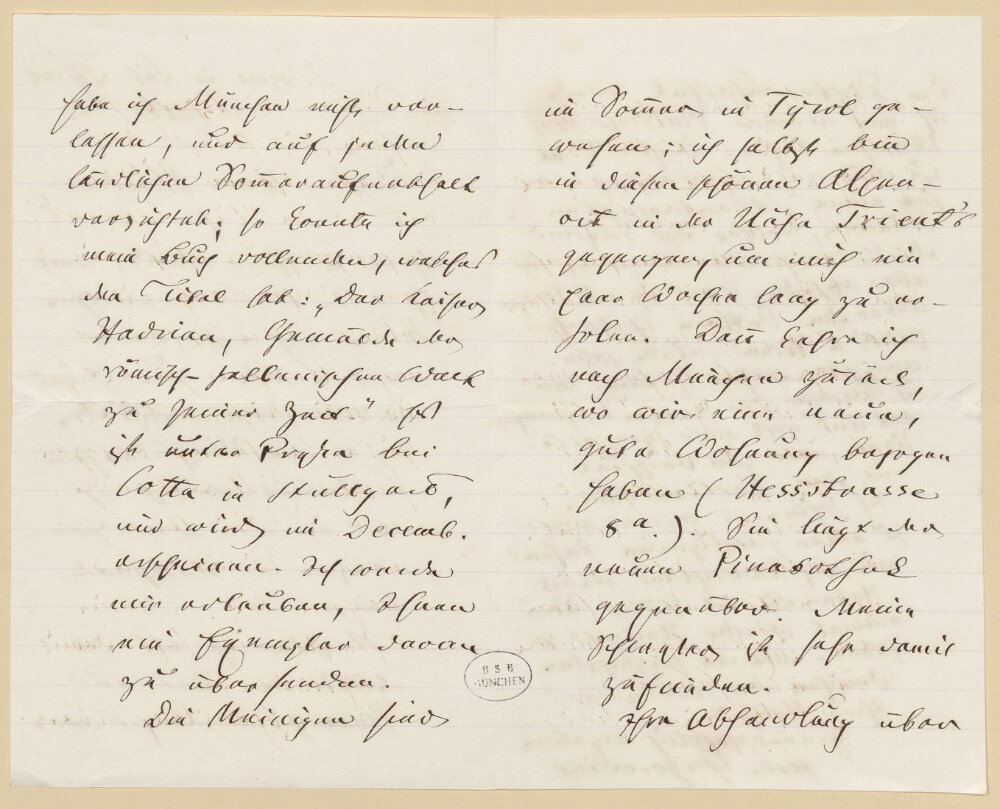 habe ich München nicht ver-
lassen, und auf jeden
ländlichen Sommeraufenthalt
verzichtet; so konnte ich
mein Buch vollenden, welches
den Titel hat: „Der Kaiser
Hadrian, Gemälde der
römisch-hellenischen Welt
zu seiner Zeit." Es
ist unter Presse bei
Cotta in Stuttgart,
und wird im Decemb.
erscheinen. Ich werde
mir erlauben, Ihnen
ein Exemplar davon
zu übersenden.
Die Meinigen sind
im Som̄er in Tyrol ge-
wesen; ich selbst bin
in diesen schönen Alpen-
ort in der Nähe Trient's
gegangen, um mich ein
paar Wochen lang zu er-
holen. Dan̄ kehre ich
nach München zurück,
wo wir eine neue,
gute Wohnung bezogen
haben (Hessstrasse
8a.). Sie liegt der
neuen Pinakothek
gegenüber. Meine
Schwester ist sehr damit
zufrieden.
Ihre Abhandlung über
B S B
MÜNCHEN